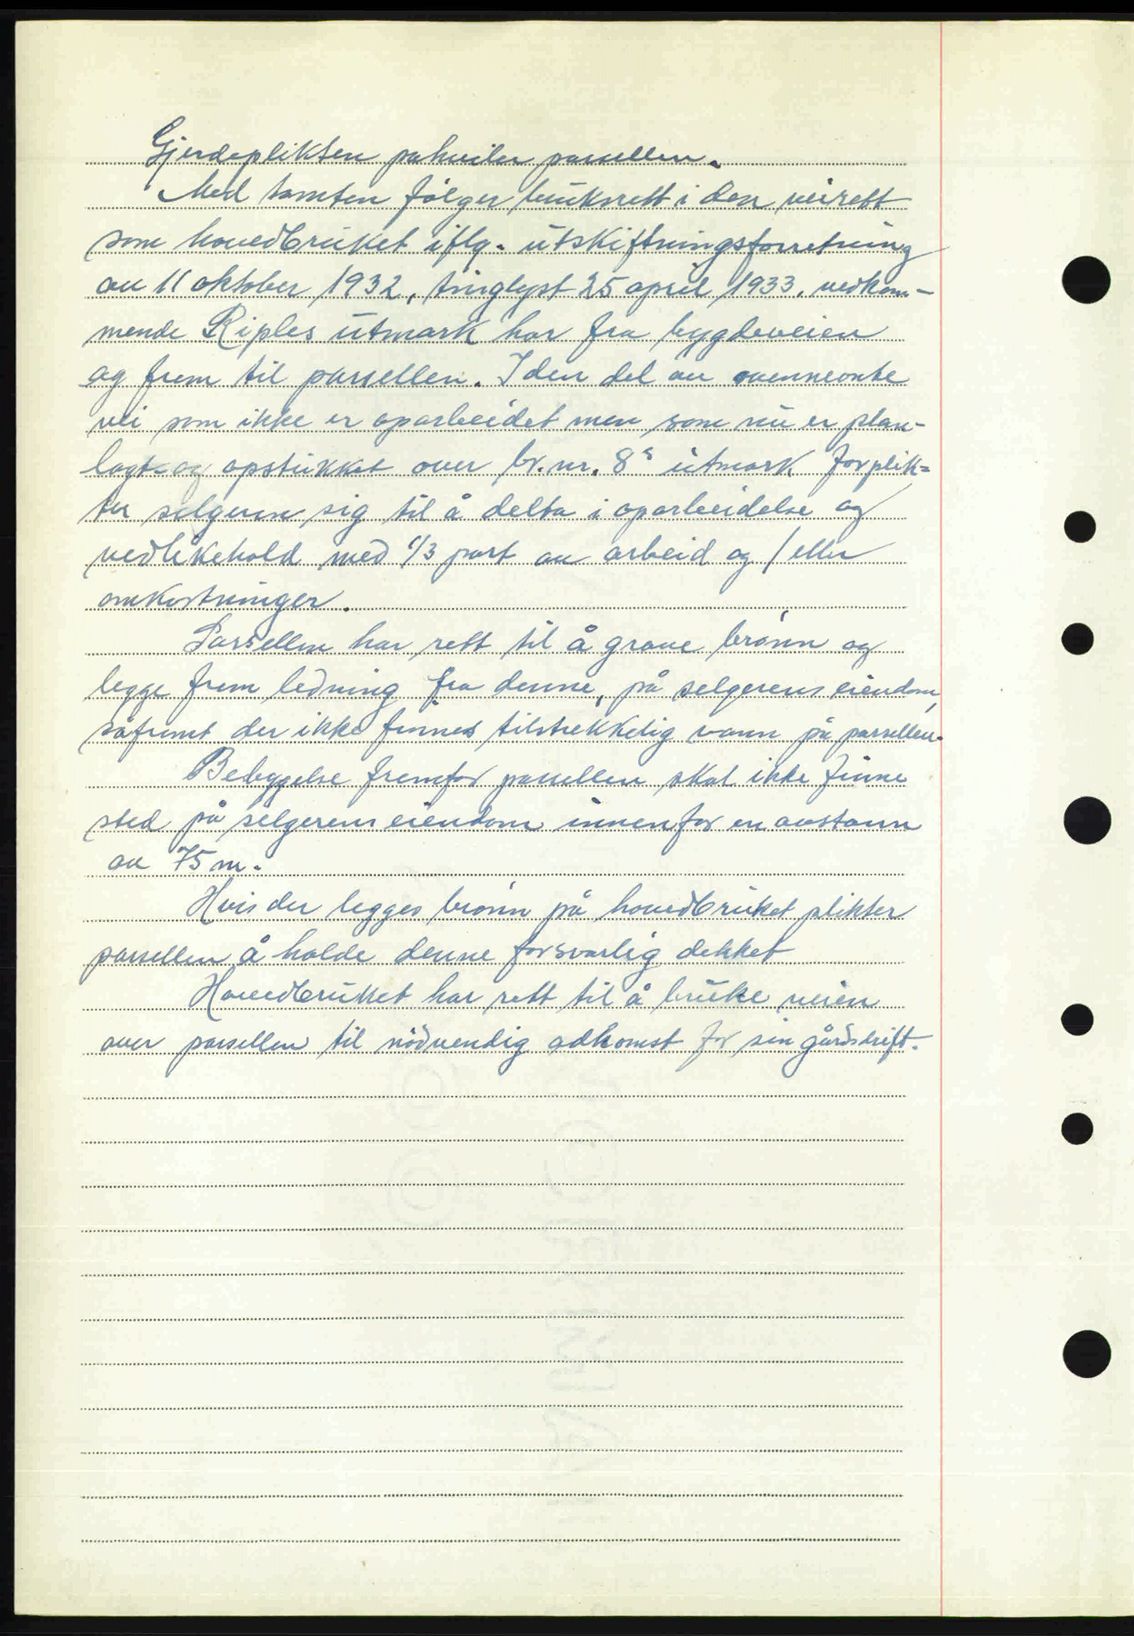 Gjerdeplikten påhviler parsellen.
Med tomten følger bruksrett i den veirett
som hovedbruket iflg. utskiftningsforretning
av 11 oktober 1932, tinglyst 25 april 1933. vedkom-
mende Riples utmark har fra bygdeveien
og frem til parsellen. I den del av ovennevnte
vei som ikke er oparbeidet men som nu er plan-
lagt og opstukket over br. nr. 8s utmark forplik-
ter selgeren sig til å delta i oparbeidelse og
vedlikehold med 1/3 part av arbeid og / eller
omkostninger.
Parsellen har rett til å grave brønn og
legge frem ledning fra denne, på selgerens eiendom,
såfremt der ikke finnes tilstrekkelig vann på parsellen.
Bebyggelse fremfor parsellen skal ikke finne
sted på selgerens eiendom innenfor en avstann
av 75 m.
Hvis der legges brønn på hovedbruket plikter
parsellen å holde denne forsvarlig dekket
Hovedbruket har rett til å bruke veien
over parsellen til nödvendig adkomst for sin gårdsdrift.